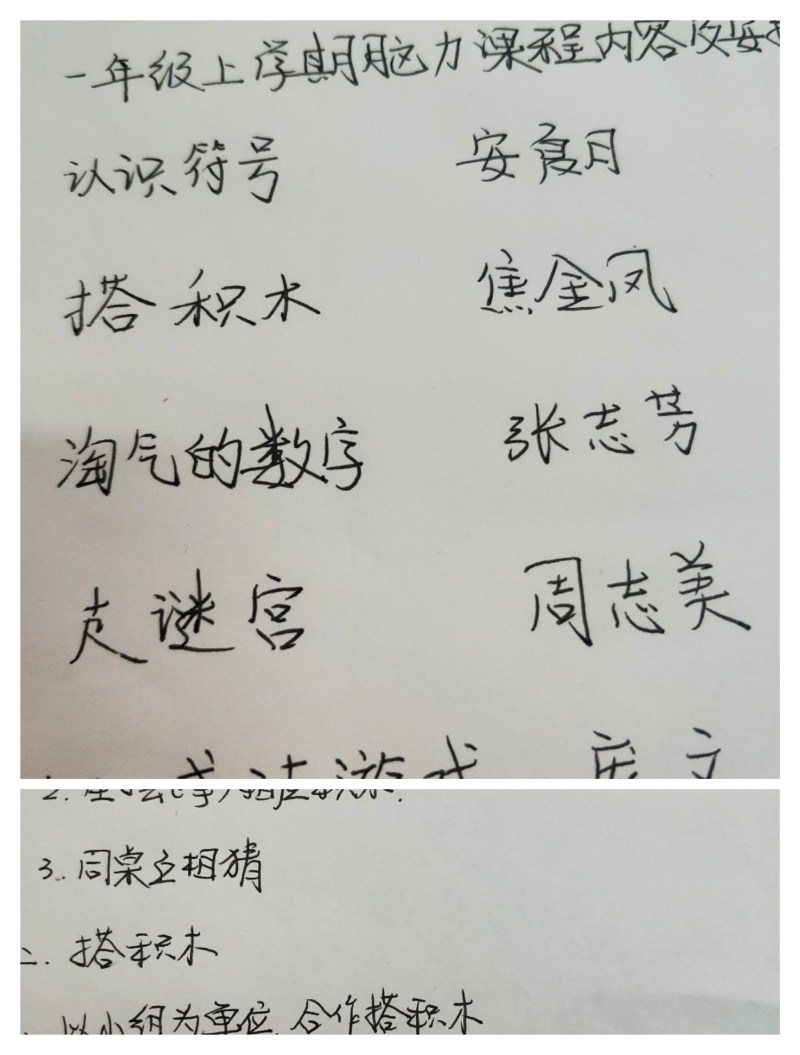 一年级上学期脑力课程内容及安排
认识符号 安夏月
搭积木 焦金凤
淘气的数字 张志芳
走谜宫 周志美
游戏
3. 同桌互相猜
二. 搭积木
以小组为单位, 合作搭积木